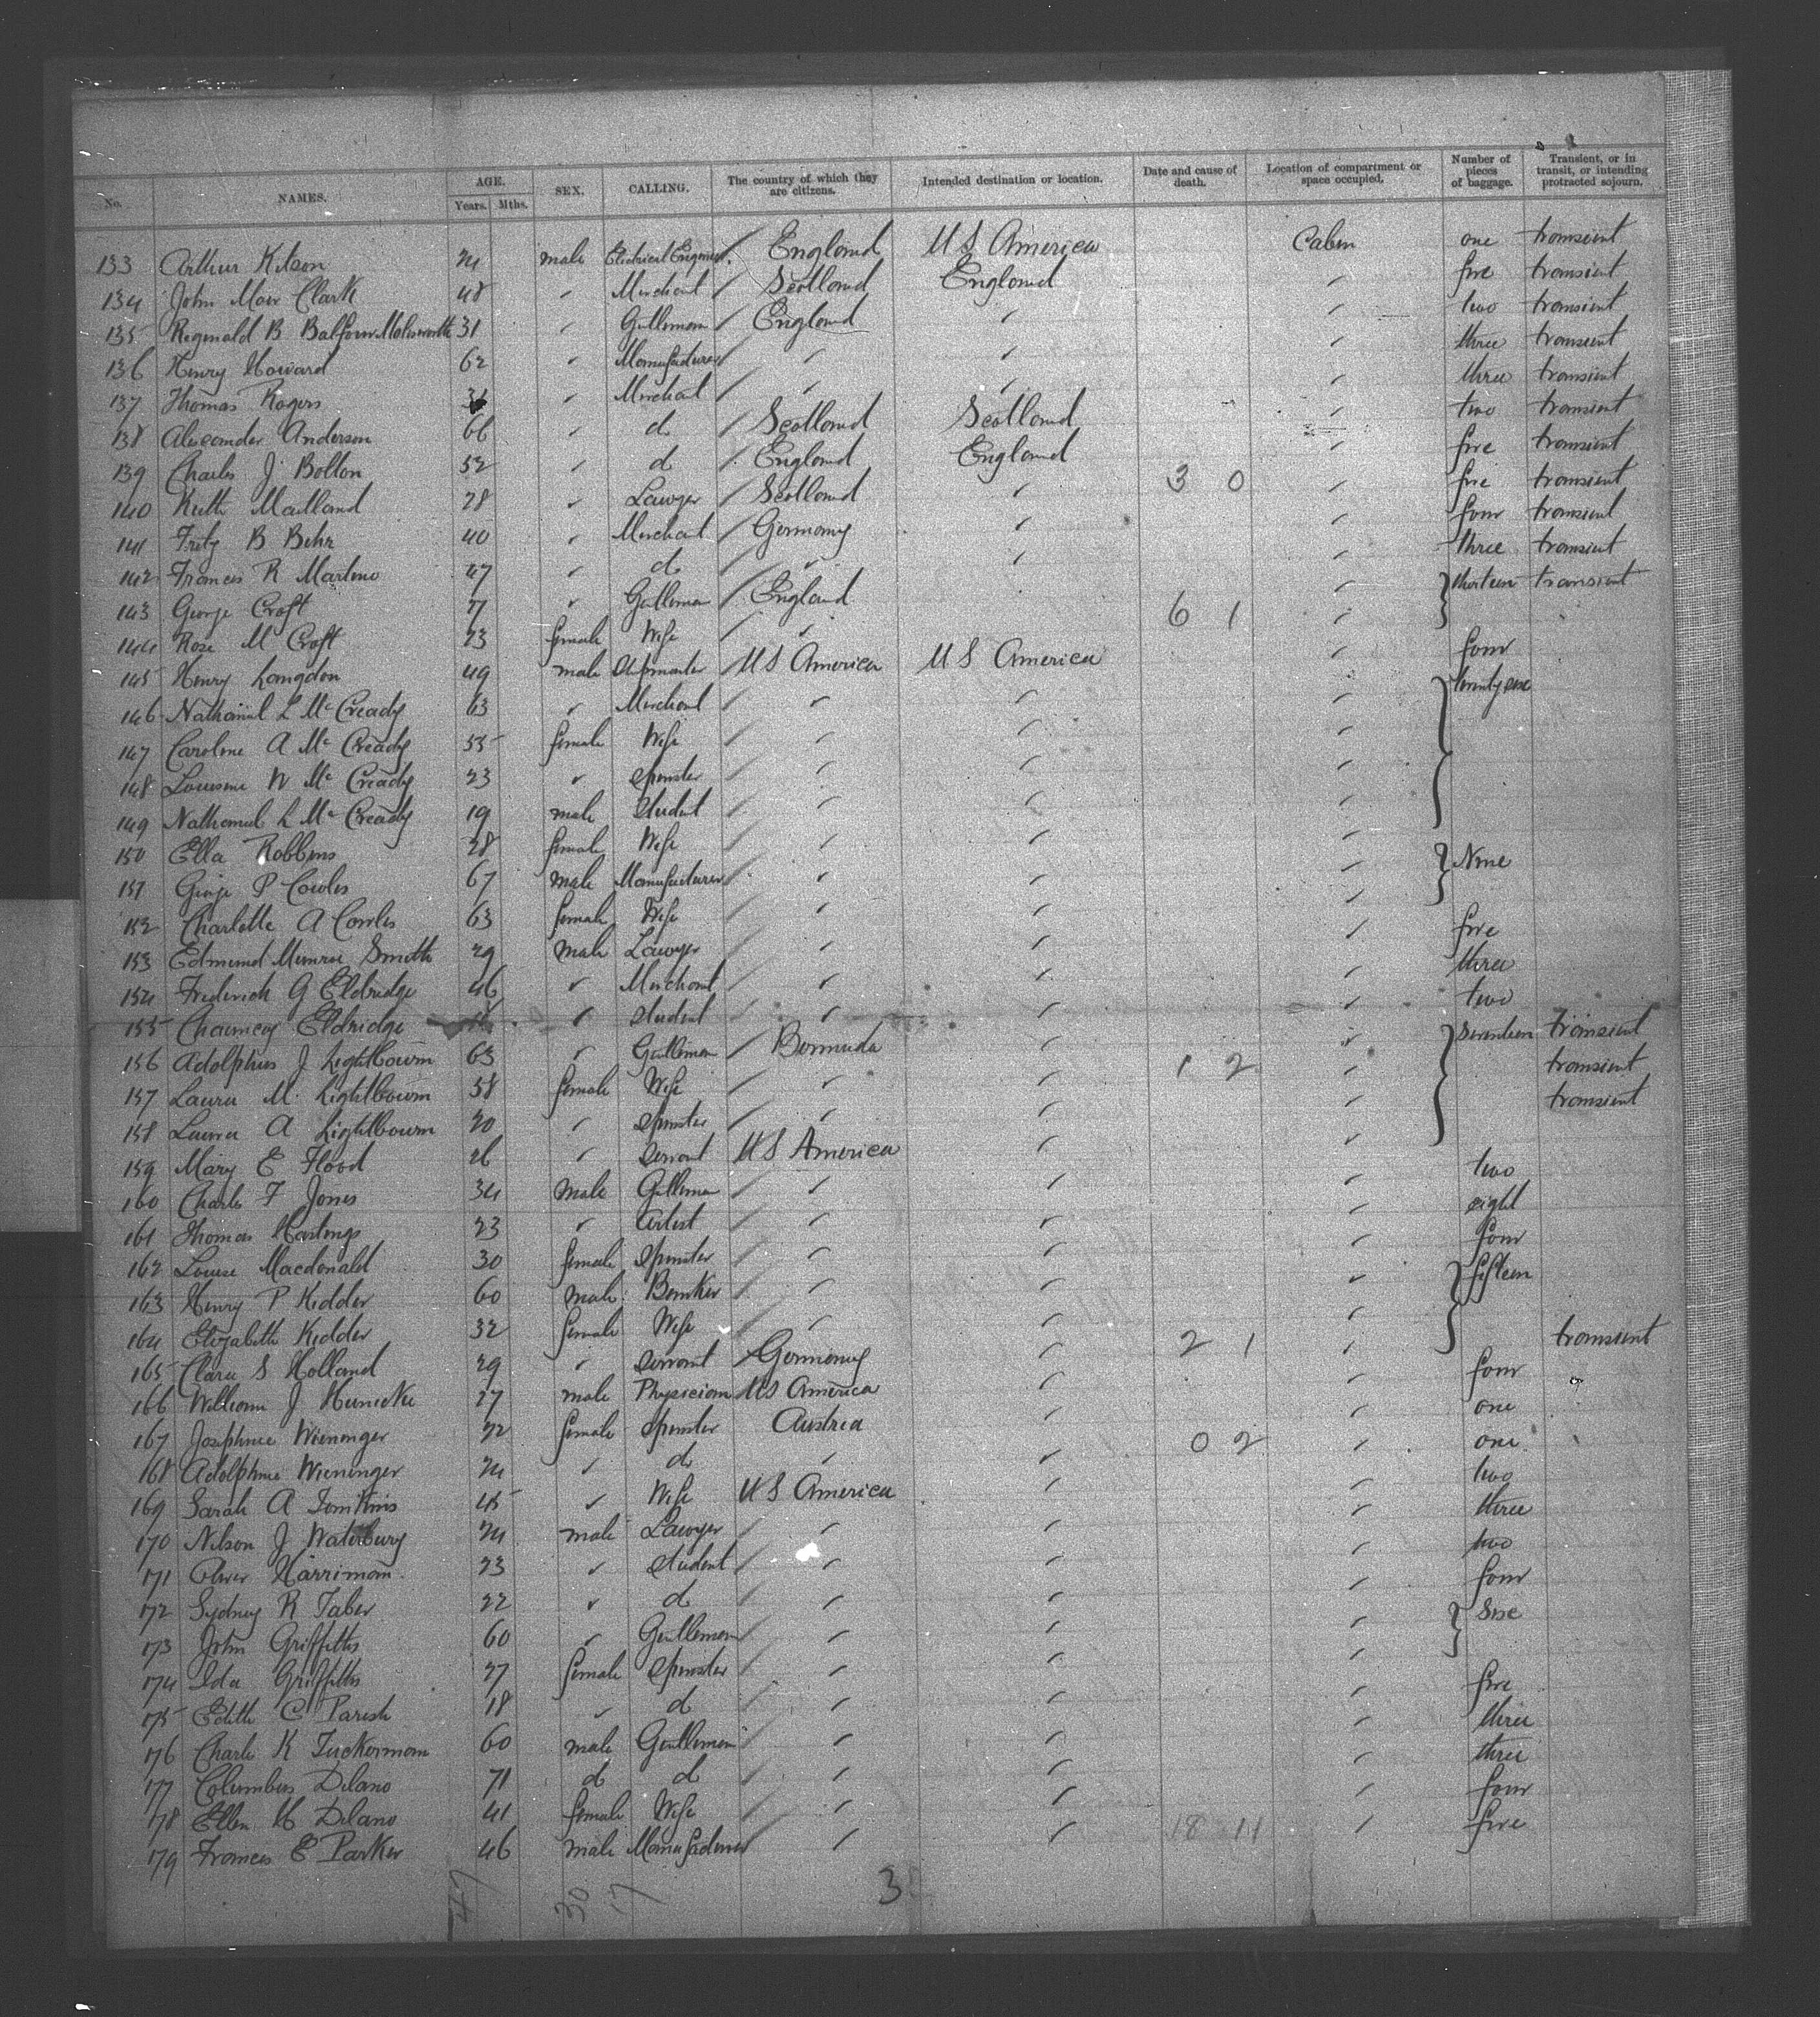 No. NAMES. AGE. Years. Mths. SEX. CALLING. The country of which they are citizens. Intended destination or location. Date and cause of death. Location of compartment or space occupied. Number of pieces of baggage. Transient, or in transit, or intending protracted sojourn.
133 Arthur Kitson 24 male Electrical Engineer England U S America Cabin one transient
134 John Moir Clark 48 " Merchant Scotland England " five transient
135 Reginald B Balfour Molesworth 31 " Gentleman England " " two transient
136 Henry Howard 62 " Manufacturer " " " three transient
137 Thomas Rogers " Merchant " " " three transient
138 Alexander Anderson 66 " do Scotland Scotland " two transient
139 Charles J Bolton 52 " do England England " five transient
140 Keith Maitland 28 " Lawyer Scotland " 3 0 " five transient
141 Fritz B Behr 40 " Merchant Germany " " four transient
142 Frances R Martino 47 " do " " " three transient
143 George Croft 27 " Gentleman England " thirteen transient
144 Rose M Croft 23 female Wife " 6 1 "
145 Henry Langdon 49 male Shipmaster U S America U S America " four
146 Nathaniel L McCready 63 " Merchant " " " twenty one
147 Caroline A McCready 55 female Wife " " "
148 N McCready 23 " Spinster " " "
149 Nathaniel L McCready 19 male Student " " "
150 Ella Robbins 28 female Wife " " "
151 George P Cowles 67 male Manufacturer " " " Nine
152 Charlotte A Cowles 63 female Wife " " "
153 Edmund Munroe Smith 29 male Lawyer " " " five
154 Frederick G Eldridge 46 " Merchant " " " three
155 Chauncey Eldridge " Student " " " two
156 Adolphus J Lightbourn 63 " Gentleman Bermuda " " Seventeen transient
157 Laura M Lightbourn 58 female Wife " " 1 2 " transient
158 Laura A Lightbourn 20 " Spinster " " " transient
159 Mary E Flood 26 " Servant U S America " "
160 Charles F Jones 34 male Gentleman " " " two
161 Thomas Hastings 23 " Artist " " " eight
162 Louise Macdonald 30 female Spinster " " " four
163 Henry P Kidder 60 male Banker " " " fifteen
164 Elizabeth Kidder 32 female Wife " " "
165 Clara S Holland 29 " Servant Germany " 2 1 " transient
166 William J Hunicke 27 male Physician U S America " " four
167 Josephine Wieninger 22 female Spinster Austria " " one
168 Adolphine Wieninger 24 " do " " 0 2 " one
169 Sarah A Tomkins 45 " Wife U S America " " two
170 Nelson J Waterbury 24 male Lawyer " " " three
171 Oliver Harriman 23 " Student " " " two
172 Sydney R Taber 22 " do " " " four
173 John Griffiths 60 " Gentleman " " " Six
174 Ida Griffiths 27 female Spinster " " "
175 Edith C Parish 18 " do " " " five
176 Charles K Tuckerman 60 male Gentleman " " " three
177 Columbus Delano 71 do do " " " three
178 Ellen H Delano 41 female Wife " " " four
179 Frances E Parker 46 male Manufacturer " " 18 11 " five
47 30 17 3